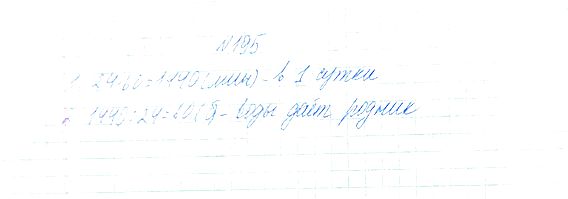 №195
1. 24·60=1440(мин)-в 1 сутки
2. 1440:24=60(б)-воды даёт родник